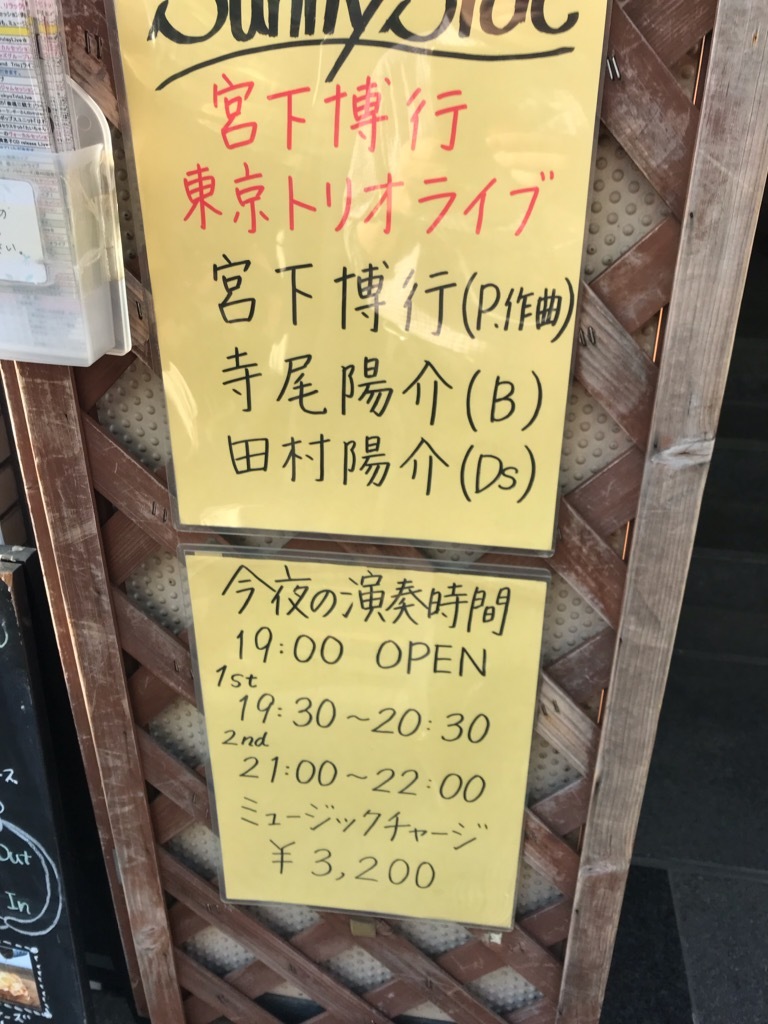 Sunny Side
宮下博行
東京トリオライブ
宮下博行(P.作曲)
寺尾陽介(B)
田村陽介(Ds)
今夜の演奏時間
19:00 OPEN
1st
19:30~20:30
2nd
21:00~22:00
ミュージックチャージ
¥3,200
Out
In